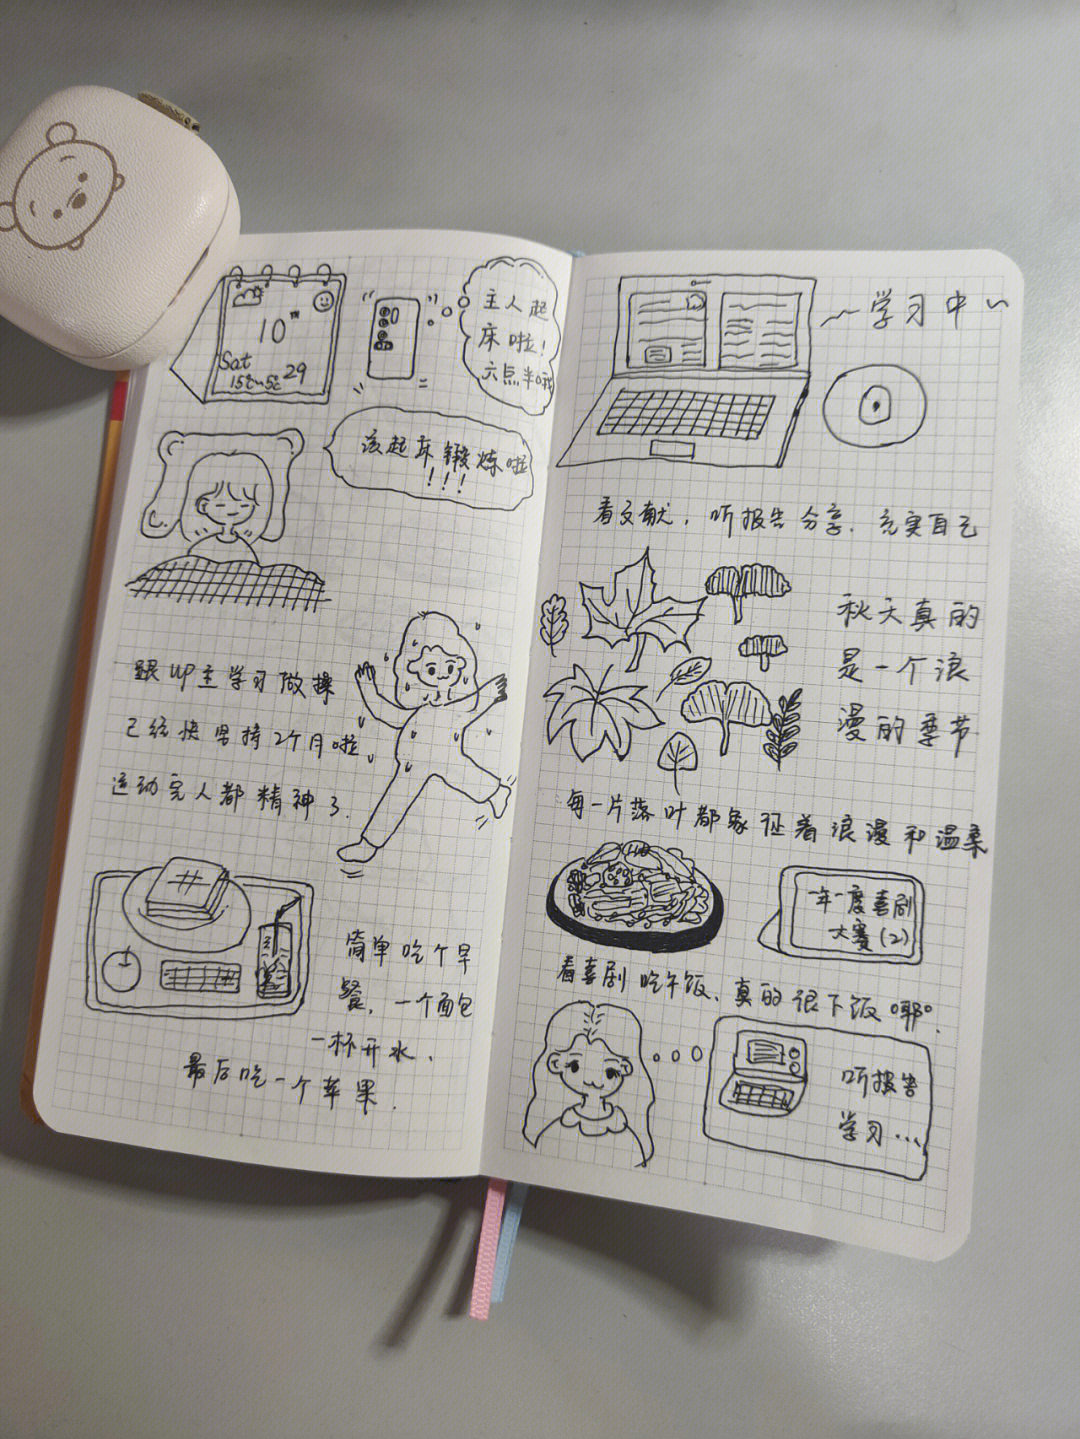 10
Sat
15℃~5℃
29
主人起
床啦!
六点半啦
该起床锻炼啦
!!!
跟up主学习做操
已经快坚持2个月啦
运动完人都精神了.
简单吃个早
餐, 一个面包
一杯开水,
最后吃一个苹果.
~学习中~
看文献, 听报告分享, 充实自己
秋天真的
是一个浪
漫的季节
每一片落叶都象征着浪漫和温柔
一年一度喜剧
大赛(2)
看喜剧吃午饭, 真的很下饭哪.
听报告
学习...